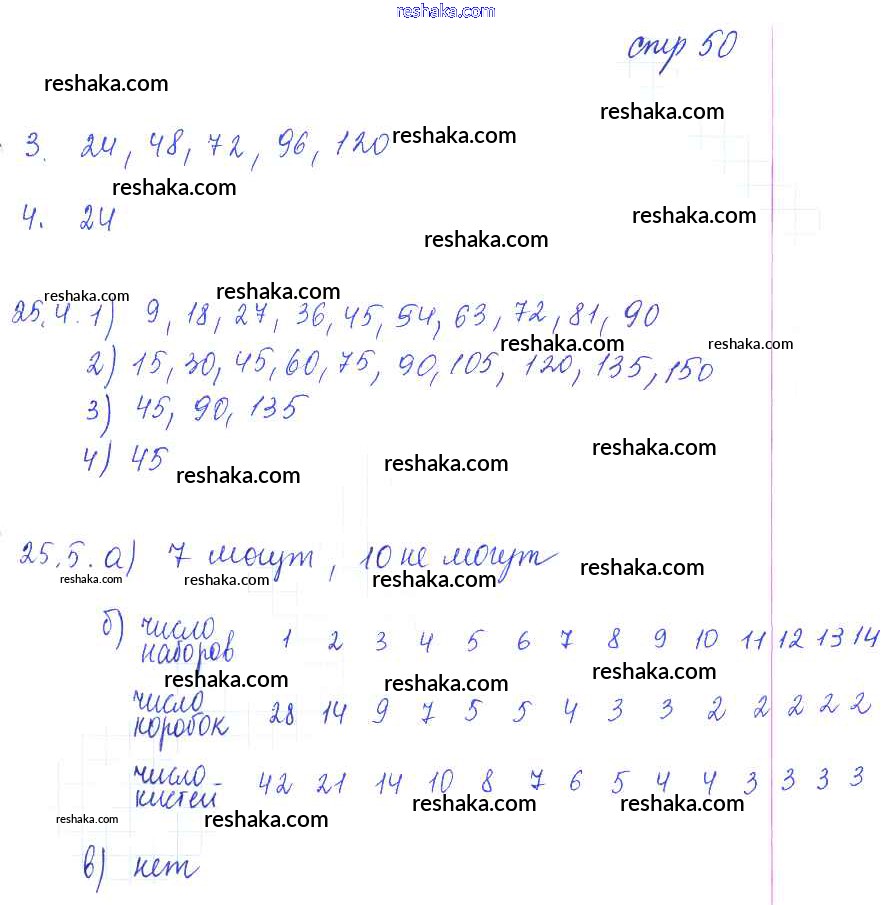 reshaka.com
стр 50
reshaka.com
reshaka.com
3. 24, 48, 72, 96, 120 reshaka.com
reshaka.com
4. 24
reshaka.com
reshaka.com
reshaka.com
reshaka.com
25.4. 1) 9, 18, 27, 36, 45, 54, 63, 72, 81, 90
reshaka.com
reshaka.com
2) 15, 30, 45, 60, 75, 90, 105, 120, 135, 150
3) 45, 90, 135
4) 45
reshaka.com
reshaka.com
reshaka.com
25.5. а) 7 могут, 10 не могут
reshaka.com
reshaka.com
reshaka.com
reshaka.com
б) число наборов 1 2 3 4 5 6 7 8 9 10 11 12 13 14
reshaka.com
reshaka.com
reshaka.com
число коробок 28 14 9 7 5 5 4 3 3 2 2 2 2 2
число кистей 42 21 14 10 8 7 6 5 4 4 3 3 3 3
reshaka.com
reshaka.com
reshaka.com
reshaka.com
в) нет